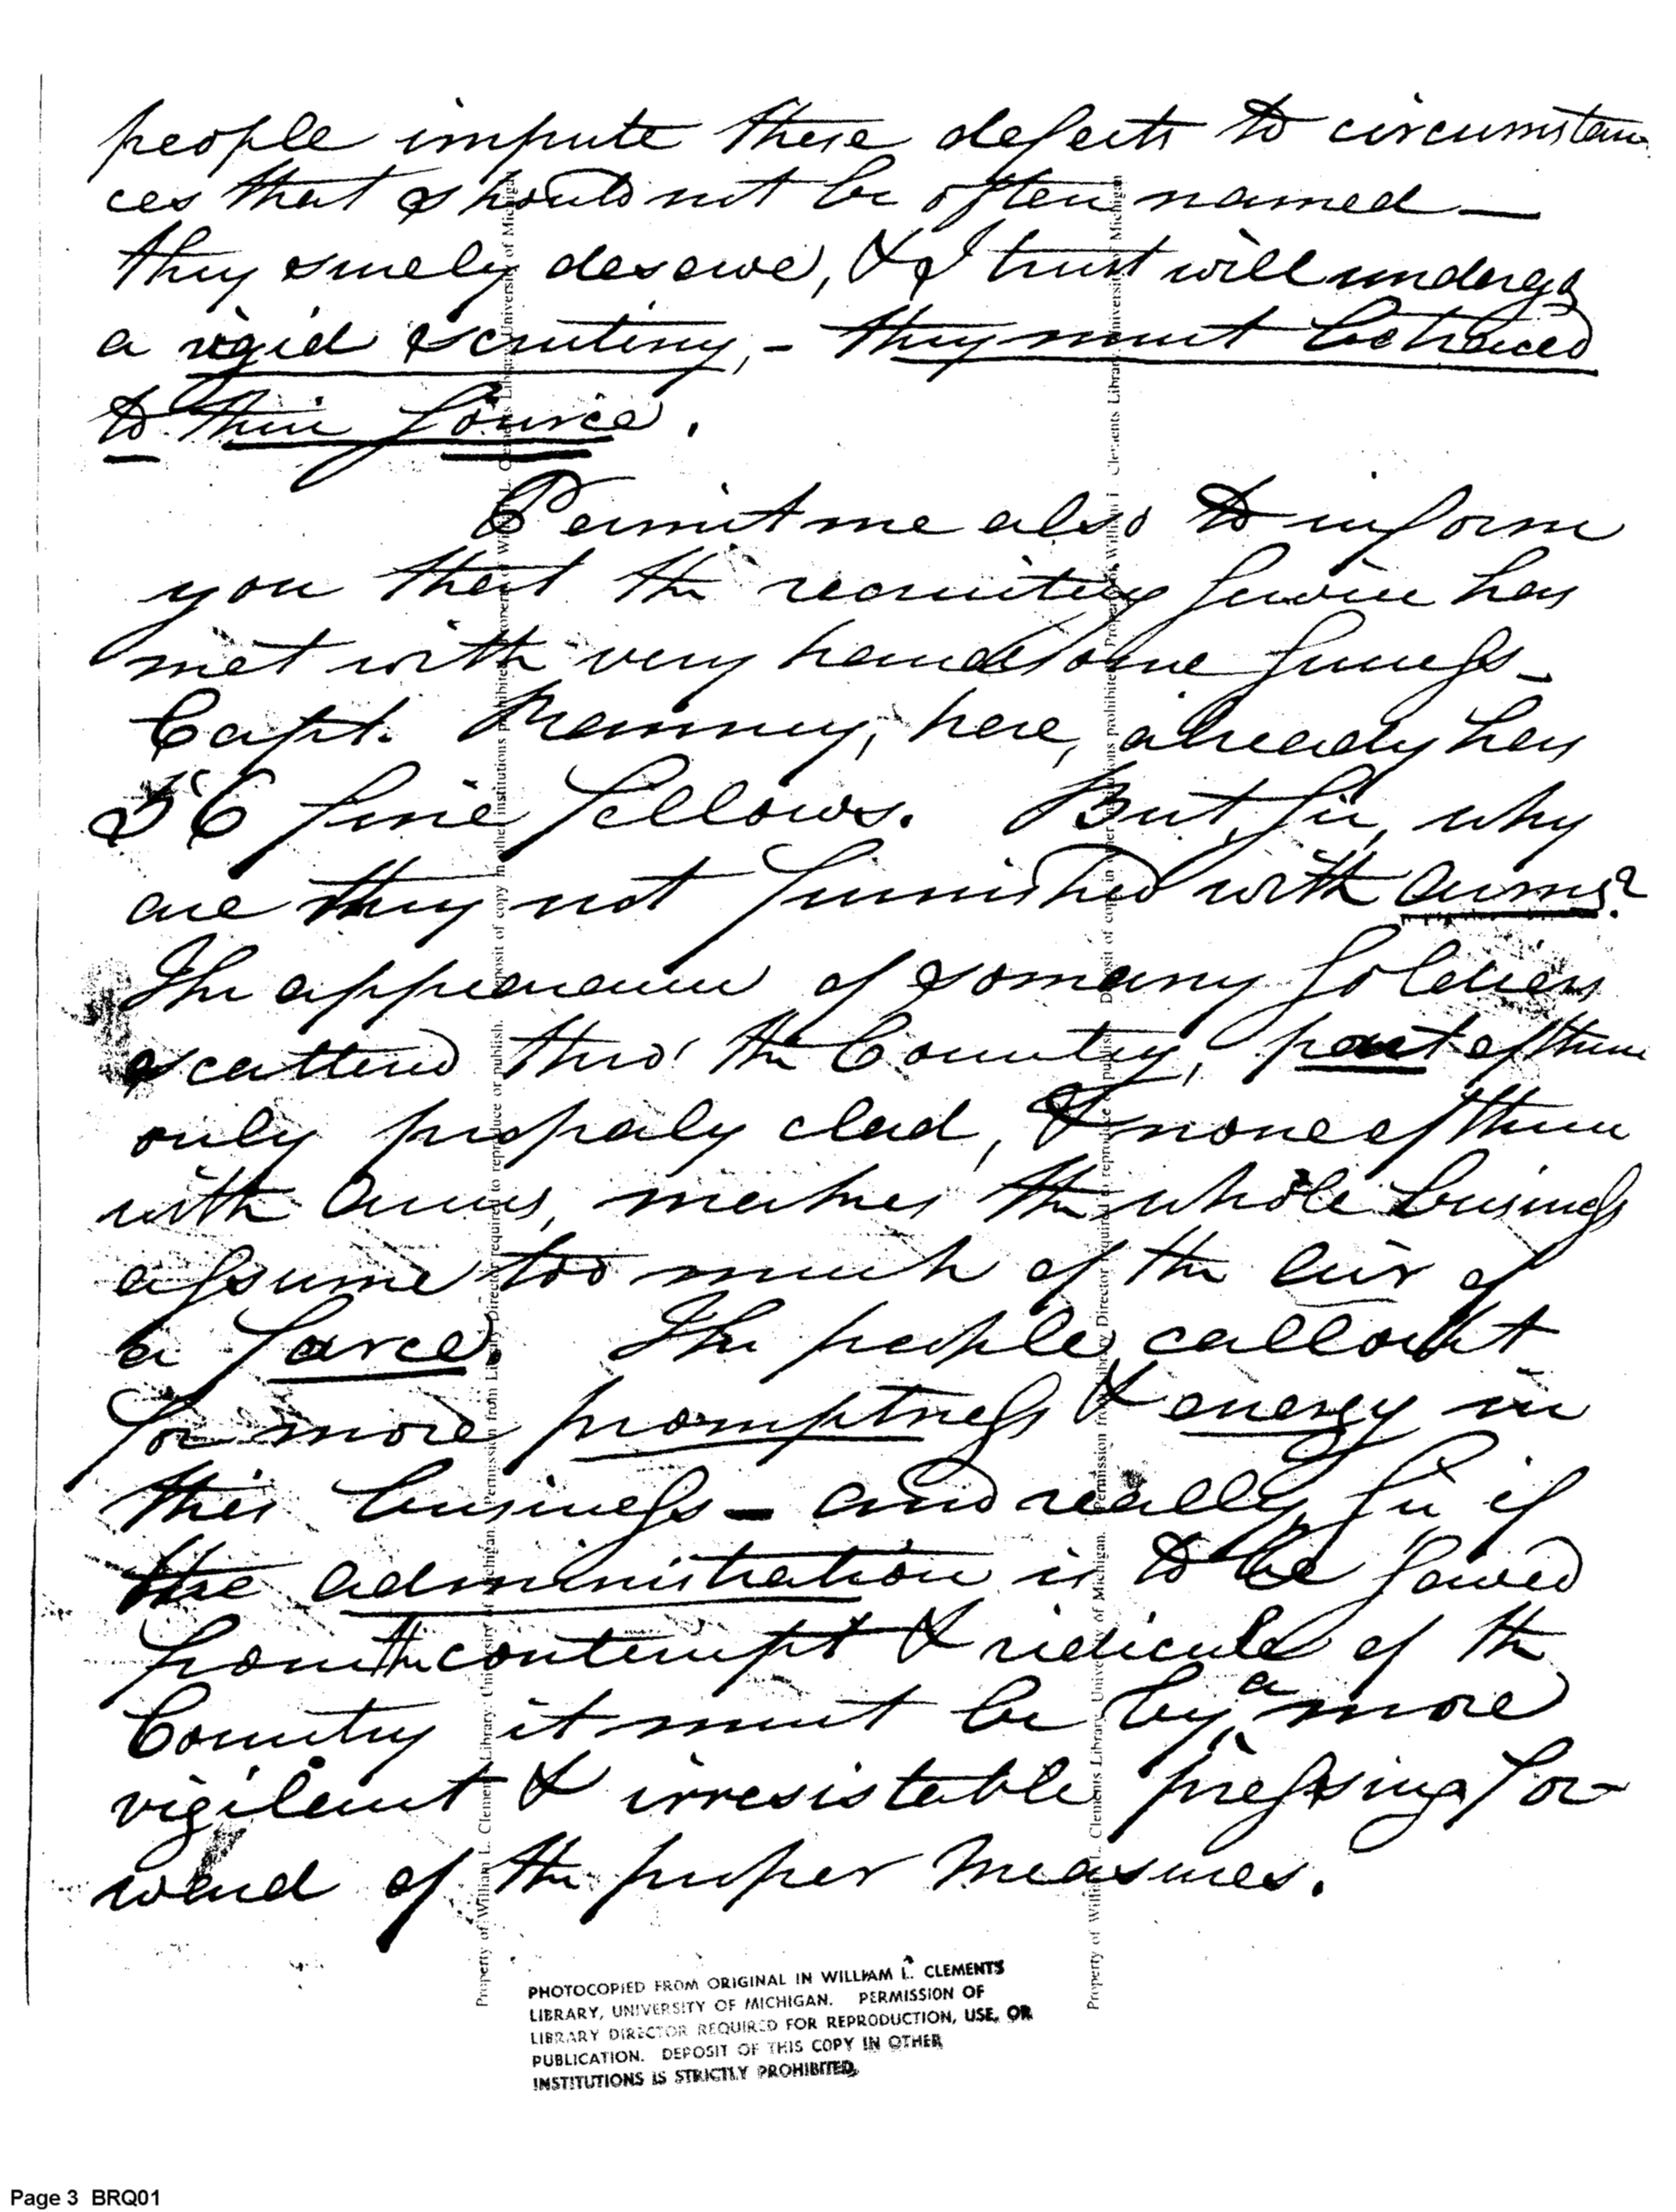 people impute these defects to circumstan
ces that should not be often named —
they surely deserve, & I trust will undergo
a rigid scrutiny, - they must be traced
to their source.
Permit me also to inform
you that the recruiting service has
met with very handsome success —
Capt. Ranney, here, already has
56 fine fellows. But, Sir, why
are they not furnished with arms?
The appearance of so many soldiers
scattered thro' the Country, part of them
only properly clad, & none of them
with arms, makes the whole business
assume too much of the air of
a farce. The people call out
for more promptness & energy in
this business — and really, Sir if
the administration is to be saved
from the contempt & ridicule of the
Country it must be by a more
vigilent & irresistable pressing for-
ward of the proper measures.
PHOTOCOPIED FROM ORIGINAL IN WILLIAM L. CLEMENTS
LIBRARY, UNIVERSITY OF MICHIGAN. PERMISSION OF
LIBRARY DIRECTOR REQUIRED FOR REPRODUCTION, USE, OR
PUBLICATION. DEPOSIT OF THIS COPY IN OTHER
INSTITUTIONS IS STRICTLY PROHIBITED.
Property of William L. Clements Library, University of Michigan. Permission from Library Director required to reproduce or publish. Deposit of copy in other institutions prohibited.
Property of William L. Clements Library, University of Michigan
Property of William L. Clements Library, University of Michigan. Permission from Library Director required to reproduce or publish. Deposit of copy in other institutions prohibited.
Property of William L. Clements Library, University of Michigan
Page 3 BRQ01